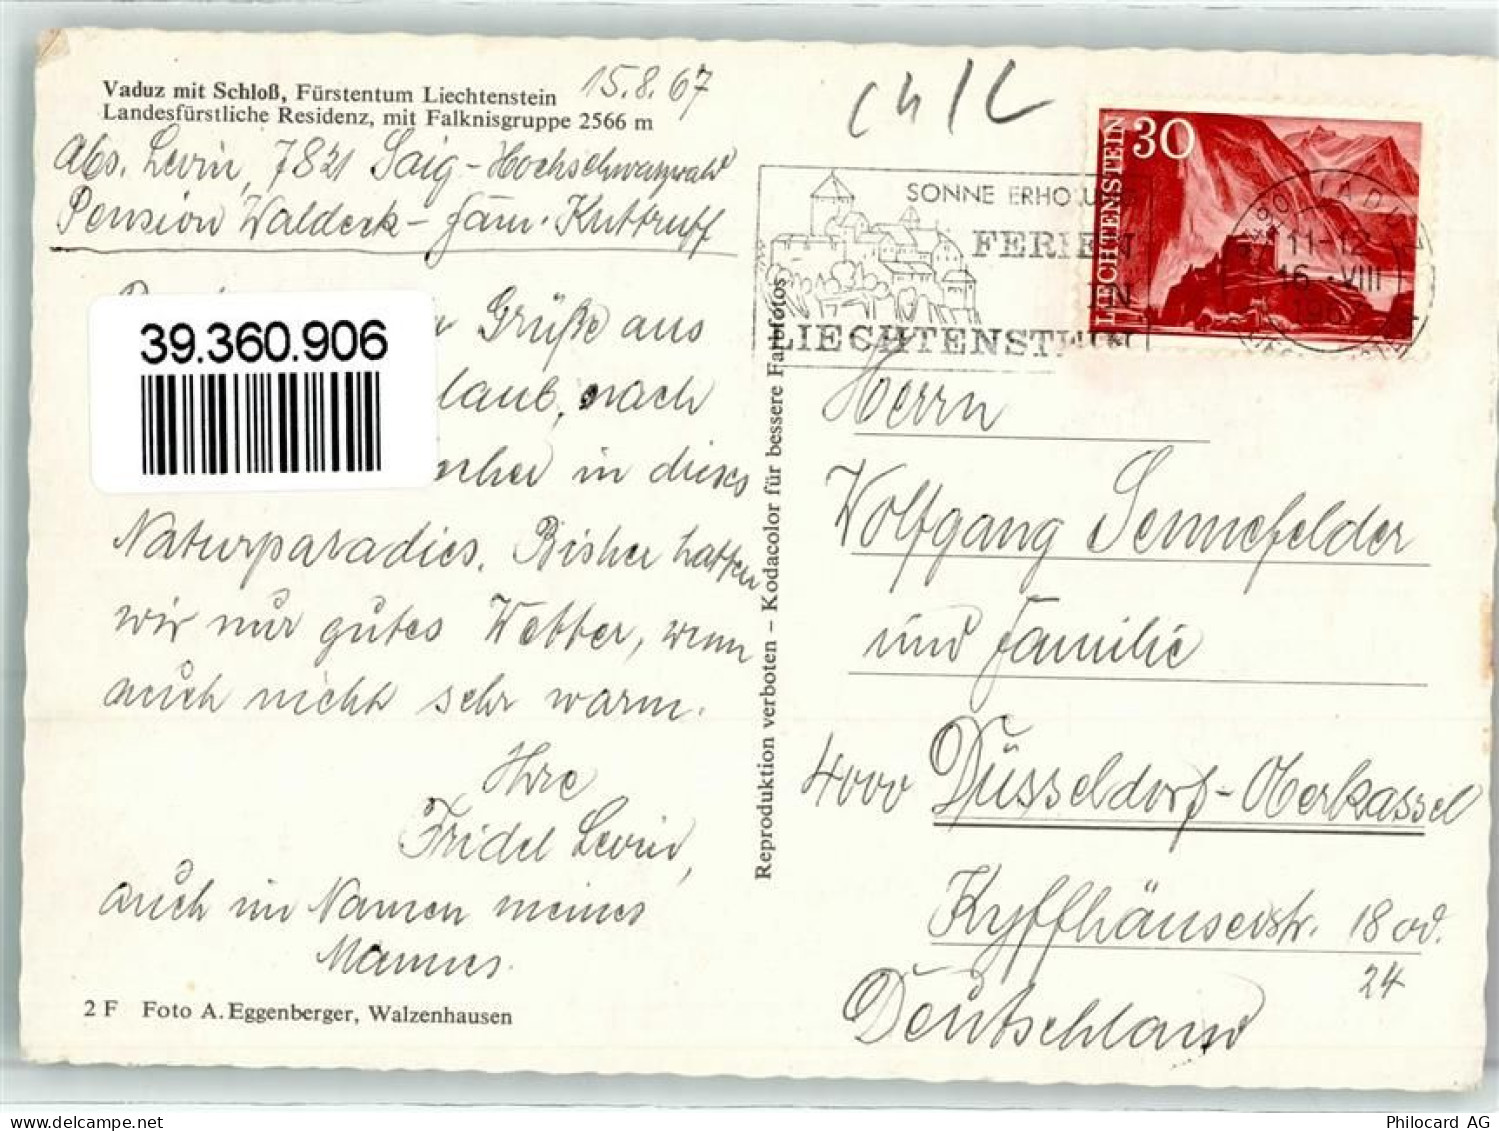 Vaduz mit Schloß, Fürstentum Liechtenstein
Landesfürstliche Residenz, mit Falknisgruppe 2566 m
15.8.67
Abs. Levin, 7821 Saig-Hochschwarzwald
Pension Waldeck - Fam. Kuttruff
39.360.906
Grüße aus
laub, nach
in dieses
Naturparadies. Bisher hatten
wir nur gutes Wetter, wenn
auch nicht sehr warm.
Ihre
Fridel Levin,
auch im Namen meines
Mannes.
2 F Foto A. Eggenberger, Walzenhausen
Reproduktion verboten – Kodacolor für bessere Farbfotos
SONNE ERHOLU
FERIEN
IN
LIECHTENSTEIN
30
LIECHTENSTEIN
VADUZ
11-12
16.VIII
196
Herrn
Wolfgang Sennefelder
und Familie
4000 Düsseldorf-Oberkassel
Kyffhäuserstr. 18 od.
24
Deutschland
delcampe.net
Philocard AG